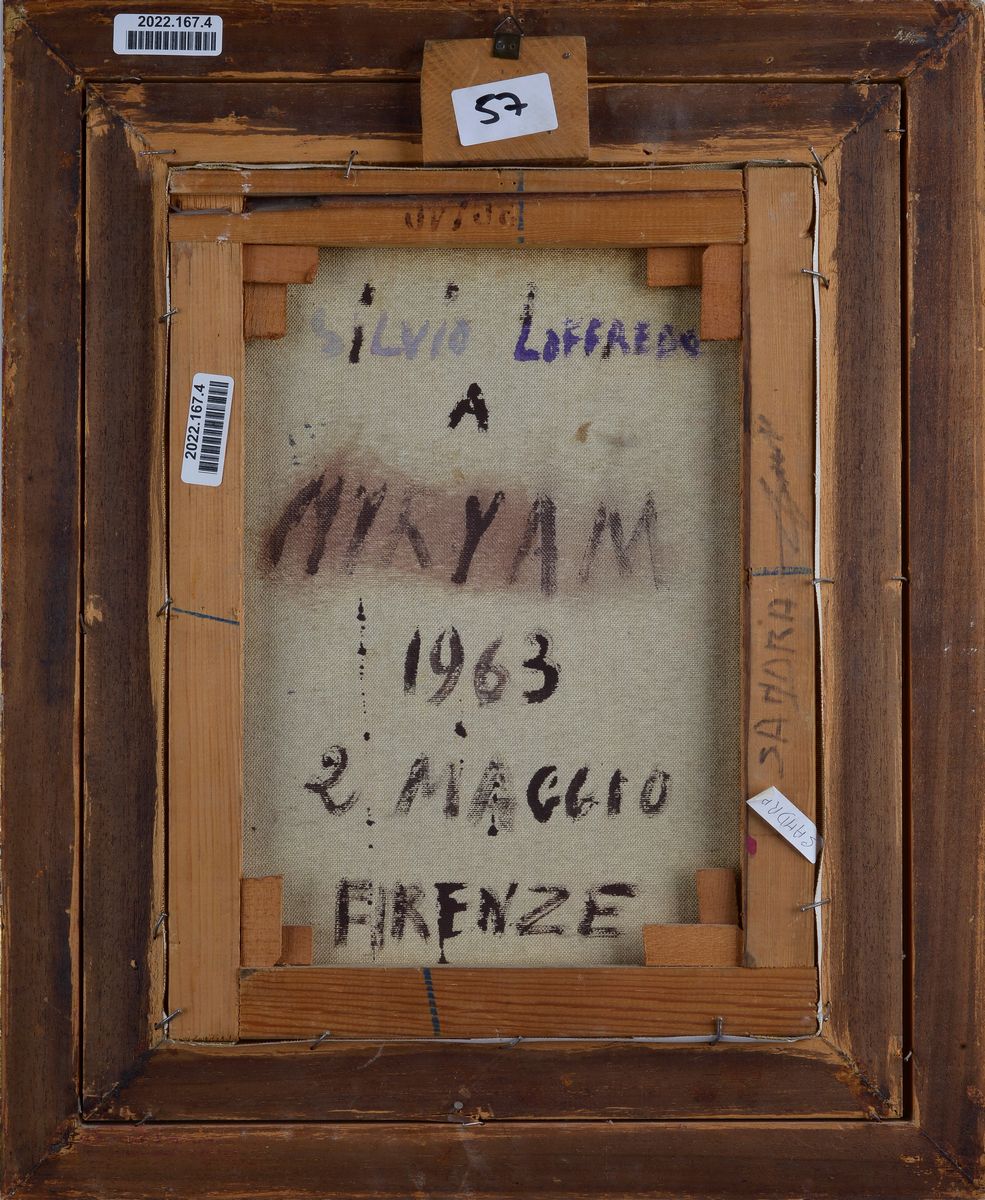 2022.167.4
57
SILVIO LOFFREDO
A
MIRYAM
1963
2 MAGGIO
FIRENZE
2022.167.4
SANDRA
SANDRA